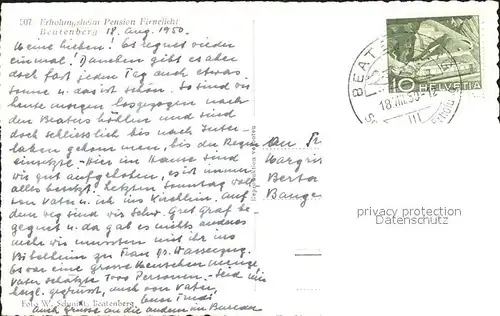 507 Erholungsheim Pension Firnelicht
Beatenberg 18. Aug. 1950.
Meine Lieben! Es regnet wieder
einmal! Daneben gibt es aber
doch fast jeden Tag auch etwas
Sonne u. das ist schön. So sind wir
heute morgen losgezogen nach
den Beatushöhlen und sind
doch schliesslich bis nach Inter-
laken gekommen, bis der Regen
einsetzte. Hier im Hause sind
wir gut aufgehoben, es ist immer
alles besetzt. Letzten Sonntag
Vater u. ich ins Kirchlein. Auf
dem Weg sind wir Schw. Gret Graf be-
gegnet u. da gab es nichts anderes
mehr wir mussten mit ihr ins
Bibelheim zu Frau Dr. Wasserzug.
Es war eine grosse Menschenmenge
Vater schätzte 700 Personen. Seid
herzl. gegrüsst, auch von Vater,
Eure Trudi
Foto W. Schmidt, Beatenberg
auch Grüsse an die andern im Bureau
Reproduktion verboten
HELVETIA
10
BEATENBERG
18.VIII.50
An Fr
Margrit
Berta
Bange
privacy protection
Datenschutz